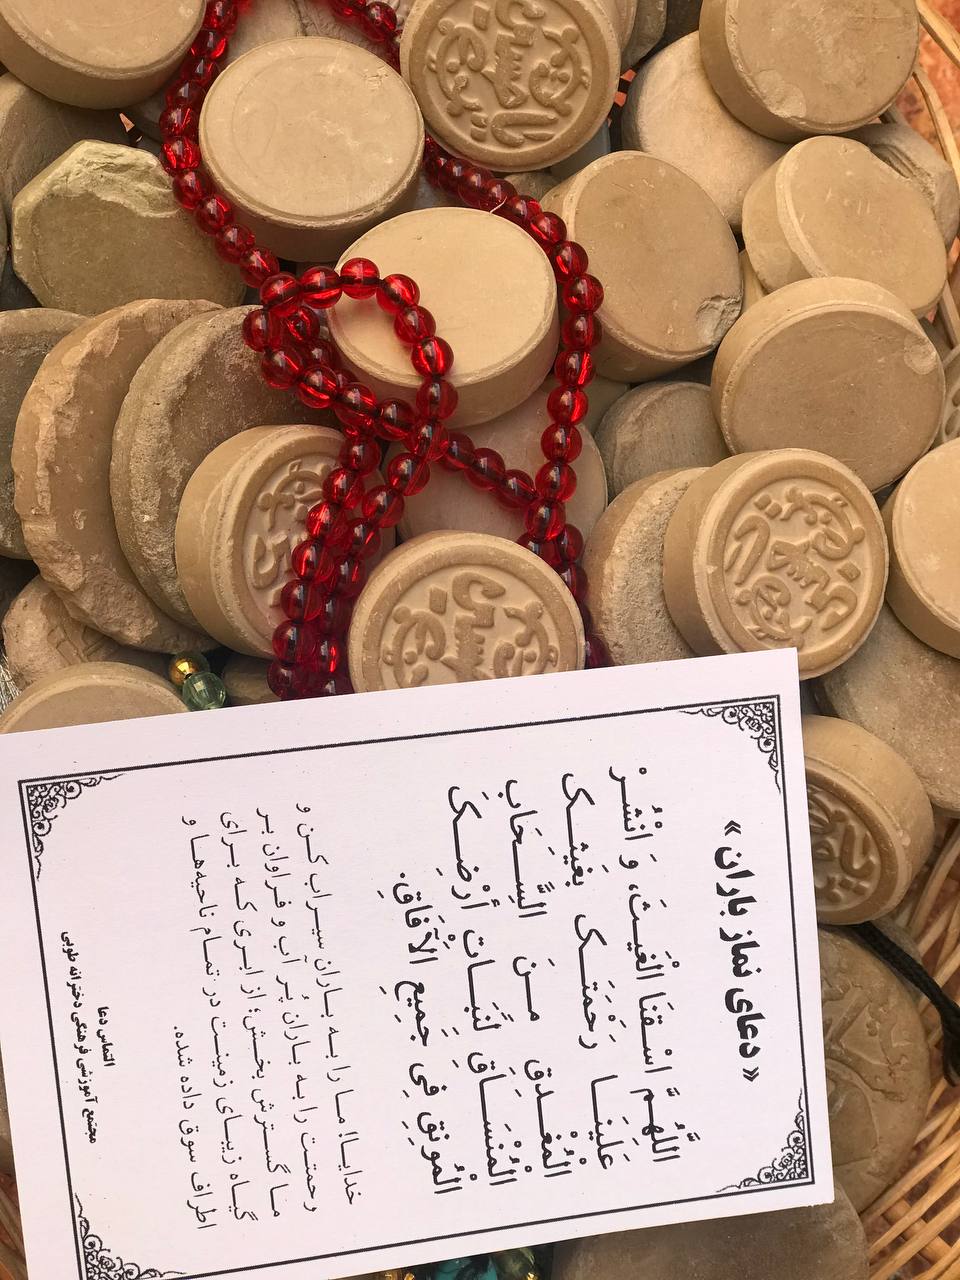 «دعای نماز باران»
اللَّهُمَّ اسْقِنَا الْغَيْثَ، وَ انْشُرْ
عَلَيْنَا رَحْمَتَکَ بِغَيْثِکَ
الْمُغْدِقِ مِنَ السَّحَابِ
الْمُنْسَاقِ لِنَبَاتِ أَرْضِکَ
الْمُونِقِ فِی جَمِيعِ الْآفَاقِ.
خدایا! ما را به باران سیراب کن و
رحمتت را به باران پُر آب و فراوان بر
ما گسترش بخش؛ از ابری که برای
گیاه زیبای زمینت در تمام ناحیه‌ها و
اطراف سوق داده شده.
التماس دعا
مجتمع آموزشی فرهنگی دخترانه طوبی